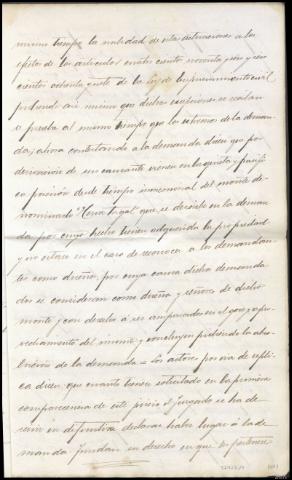 mismo tiempo la nulidad de esta
efectos de los artículos cuatro ciento noventa y seis y seis
cientos ochenta y siete de la ley de Enjuiciamiento civil
pidiendo así mismo que dichas escepciones se reciban
a prueba al mismo tiempo que los estremos de la deman
da; ahora contestando a la demanda dicen que por
derivacion de sus causantes vienen en la quieta y pacífi
ca posesión desde tiempo inmemorial del monte de
nominado que se describe en la deman
da por cuyo hecho tienen adquirida la propiedad
y no estan en el caso de reconocer a los demandan
tes como dueños, por cuya causa dichos demanda
dos se consideran como dueños y señores de dicho
monte y con derecho a ser amparados en el goce y apro
vechamiento del mismo y concluyen pidiendo la abso
lucion de la demanda = Los actores por via de repli
ca dicen que cuanto tienen solicitado en la primera
comparecencia de este juicio el juzgado se ha de
servir en definitiva declarar haber lugar a la de
manda fundan su derecho en que les pertenece